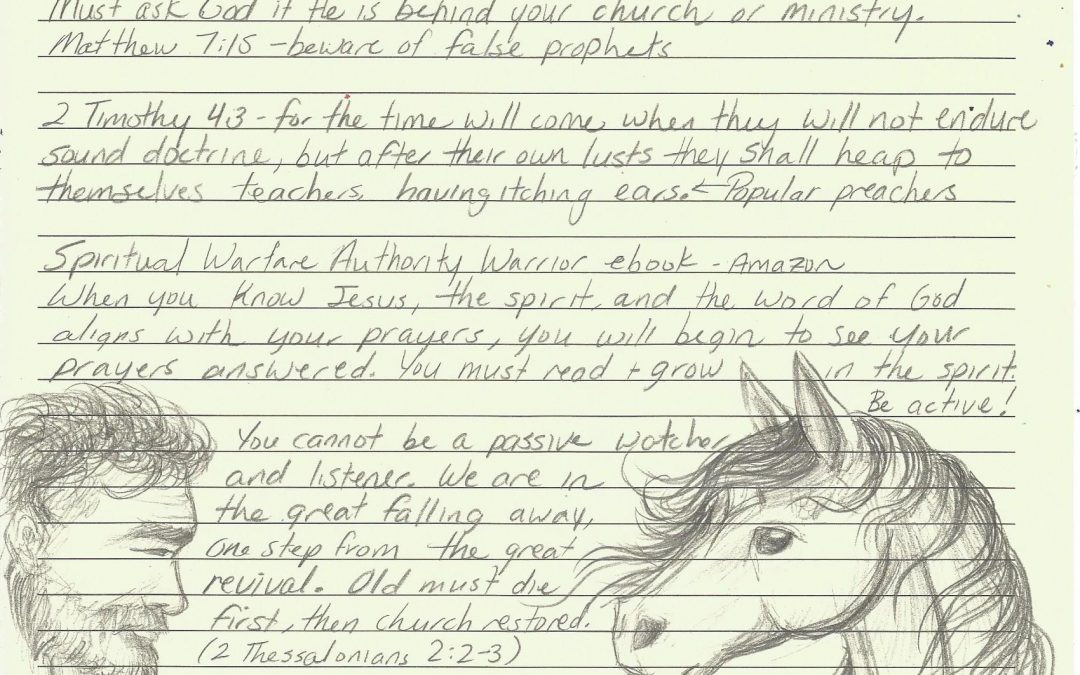 Must ask God if He is behind your church or ministry.
Matthew 7:15 - beware of false prophets
2 Timothy 4:3 - for the time will come when they will not endure
sound doctrine, but after their own lusts they shall heap to
themselves teachers, having itching ears. ← Popular preachers
Spiritual Warfare Authority Warrior ebook - Amazon
When you know Jesus, the spirit, and the word of God
aligns with your prayers, you will begin to see your
prayers answered. You must read + grow in the spirit.
Be active!
You cannot be a passive watcher
and listener. We are in
the great falling away,
one step from the great
revival. Old must die
first, then church restored.
(2 Thessalonians 2:2-3)